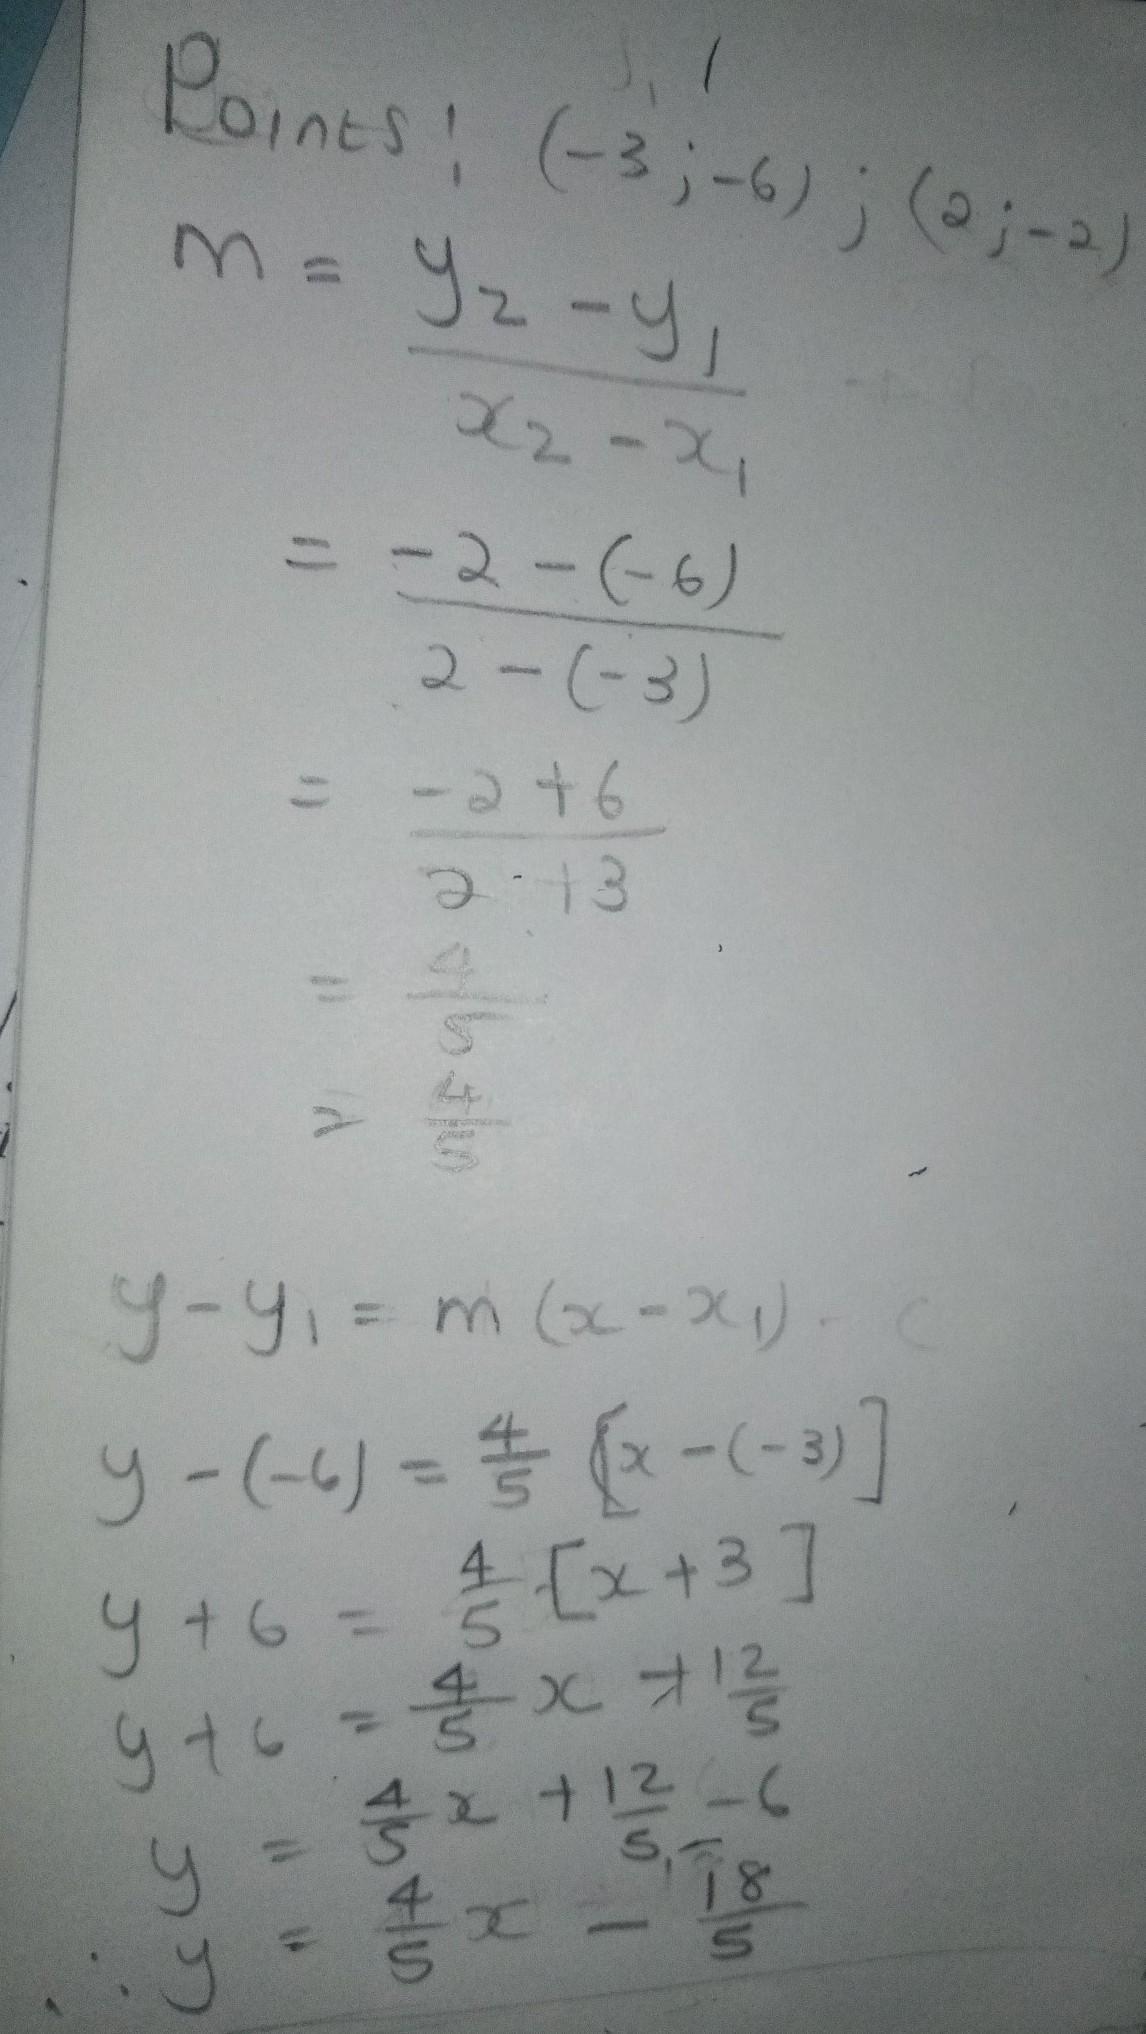 Points: (-3;-6); (2;-2)
m = y₂ - y₁ / x₂ - x₁
= -2 - (-6) / 2 - (-3)
= -2 + 6 / 2 + 3
= 4/5
= 4/5
y - y₁ = m (x - x₁)
y - (-6) = 4/5 [x - (-3)]
y + 6 = 4/5 [x + 3]
y + 6 = 4/5 x + 12/5
y = 4/5 x + 12/5 - 6
∴ y = 4/5 x - 18/5